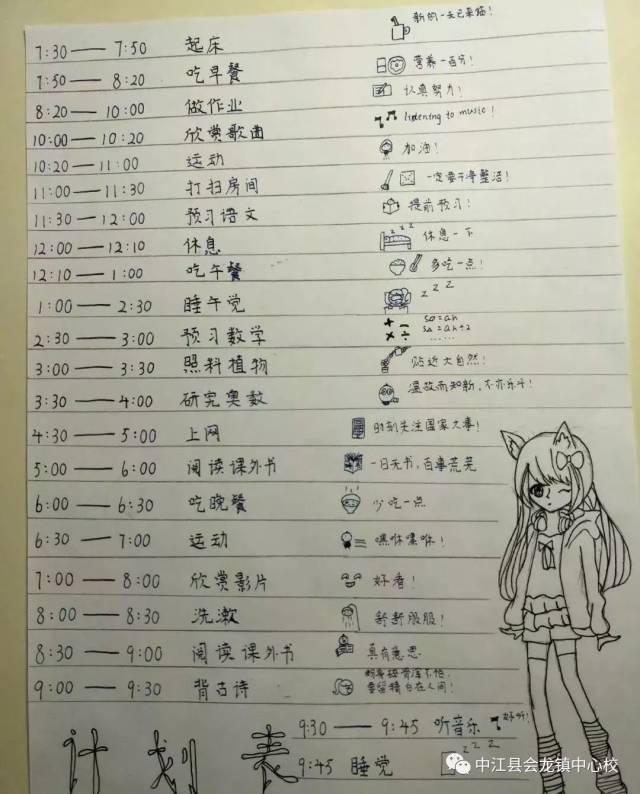 7:30 — 7:50 起床 新的一天已来临!
7:50 — 8:20 吃早餐 营养一百分!
8:20 — 10:00 做作业 认真努力!
10:00 — 10:20 欣赏歌曲 listening to music!
10:20 — 11:00 运动 加油!
11:00 — 11:30 打扫房间 一定要干净整洁!
11:30 — 12:00 预习语文 提前预习!
12:00 — 12:10 休息 zzz 休息一下
12:10 — 1:00 吃午餐 多吃一点!
1:00 — 2:30 睡午觉 zzz
2:30 — 3:00 预习数学 + - × ÷ S▱=ah
S△=ah÷2
……
3:00 — 3:30 照料植物 贴近大自然!
3:30 — 4:00 研究奥数 温故而知新,不亦乐乎!
4:30 — 5:00 上网 时刻关注国家大事!
5:00 — 6:00 阅读课外书 一日无书,百事荒芜
6:00 — 6:30 吃晚餐 少吃一点
6:30 — 7:00 运动 嘿咻嘿咻!
7:00 — 8:00 欣赏影片 好看!
8:00 — 8:30 洗漱 舒舒服服!
8:30 — 9:00 阅读课外书 真有意思
9:00 — 9:30 背古诗 粉骨碎骨浑不怕,
要留清白在人间!
9:30 — 9:45 听音乐 好听!
9:45 睡觉 zzz
计划表
中江县会龙镇中心校